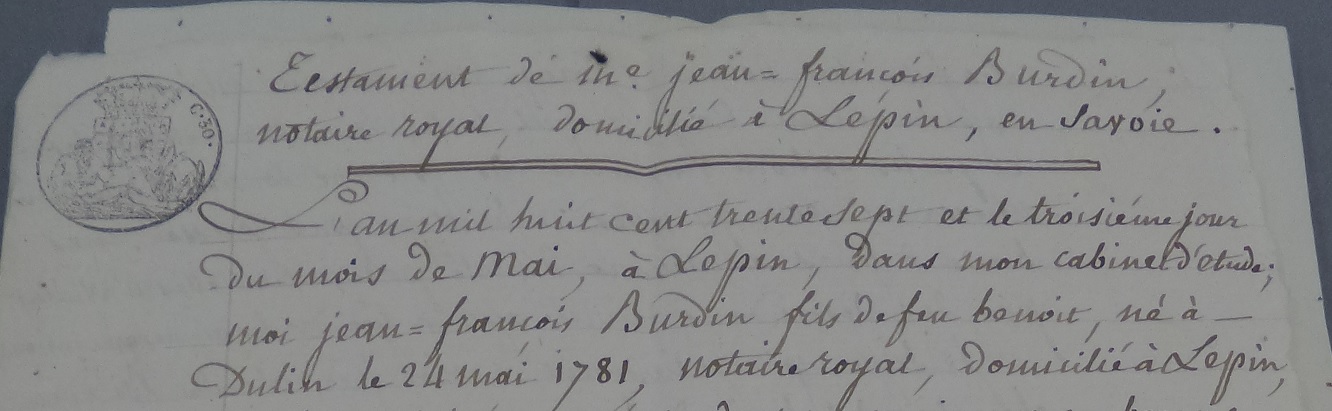 Testament de me. jean=françois Burdin,
notaire royal, domicilié à Lépin, en Savoie.
C.50.
L'an mil huit cent trente sept et le troisiéme jour
Du mois de Mai, à Lepin, Dans mon cabinet d'étude;
moi jean=françois Burdin fils de feu benoit, né à —
Dulin le 24 mai 1781, notaire royal, Domicilié à Lepin,